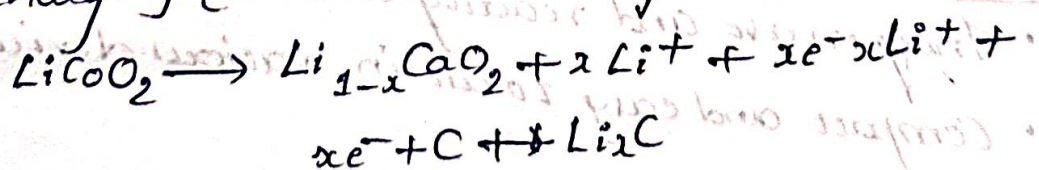 LiCoO₂ → Li₁₋ₓCaO₂ + xLi⁺ + xe⁻xLi⁺ +
xe⁻ + C + LiₓC